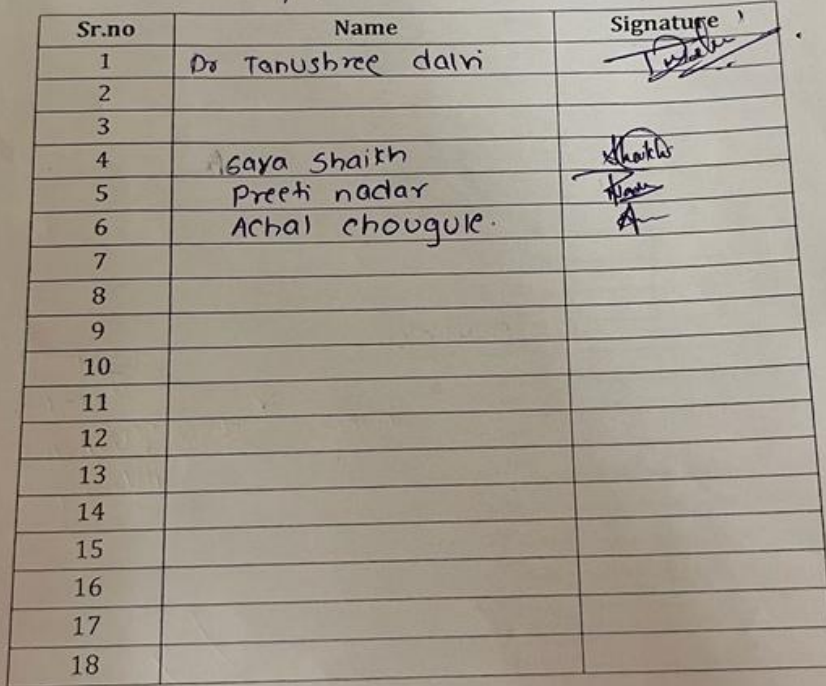 Sr.no Name Signature
1 Dr Tanushree dalvi
2
3
4 Saya Shaikh Shaikh
5 Preeti nadar
6 Achal chougule.
7
8
9
10
11
12
13
14
15
16
17
18